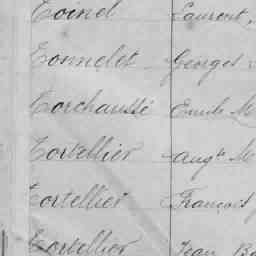 Toinel Laurent
Tonnelet Georges
Torchaussé Emile M
Tortellier Aug.te M
Tortellier François
Tortellier Jean Ba